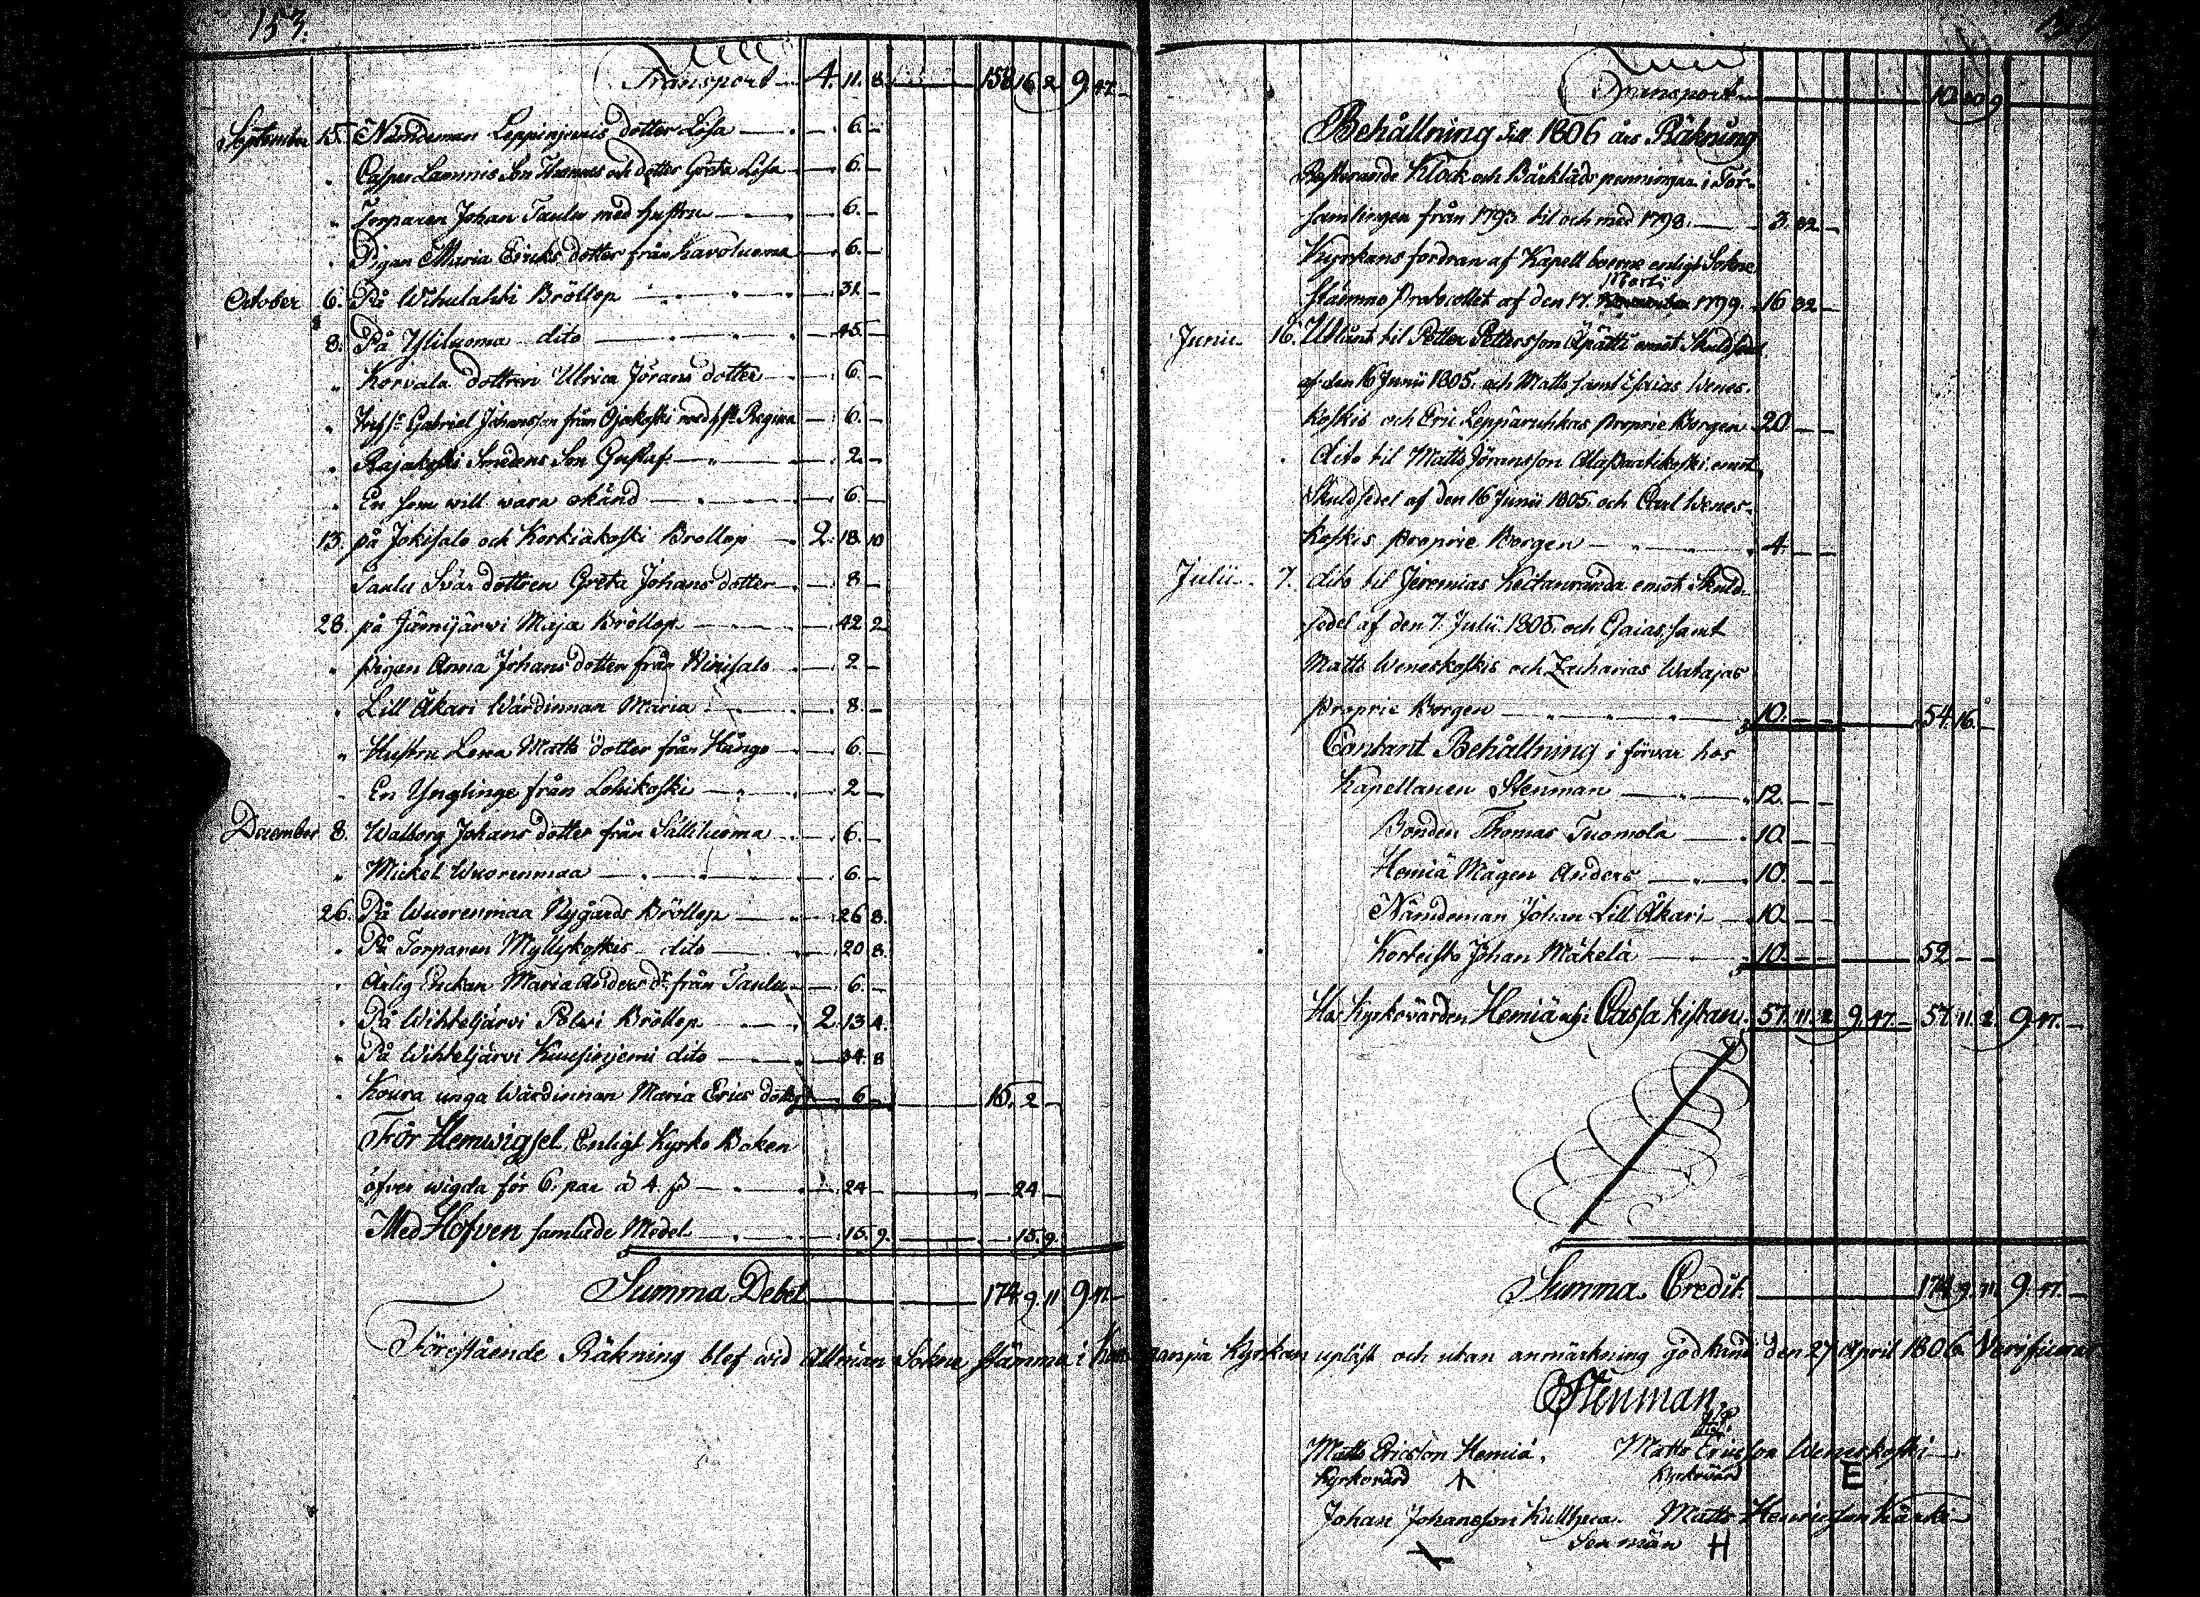 153.
Transport 4. 11. 8. 158 16 2 9. 47.
September 15. Nämdeman Leppinjemis dotter Lisa 6.
Casper Lammis Son Thomas och dotter Greta Lisa 6.
Torparen Johan Taulu med hustru 6.
Pigan Maria Ericks dotter från Karvoluoma 6.
October 6. På Wihulahti Bröllop 31
8. På Yliluoma dito 45
Korvala dottren Ulrica Jörans dotter 6.
Gabriel Johansson från Ojakoski med Regina 6.
Rajakoski Smedens Son Gustaf 2
En som will wara okänd 6.
13. på Jokisalo och Korkiakoski Bröllop 2. 18. 10
Taulu Svär dottren Greta Johans dotter 8
28. på Jämijärvi Maja Bröllop 42 2
pigan Anna Johans dotter från Kirisalo 2
Lill Åkari Wärdinnan Maria 8.
Hustru Lena Matts dotter från Hånge 6.
En Ynglinge från Lohikoski 2
December 8. Walborg Johans dotter från Sälliluoma 6.
Mickel Wuorenmaa 6.
26. På Wuorenmaa Nygårds Bröllop 26 8.
På Torparen Myllykoskis dito 20 8.
Ärlig Enckan Maria Anders dr från Taulu 6.
På Wihteljärvi Polvi Bröllop 2. 13 4.
På Wihteljärvi Kuusinjemi dito 34. 8
Koura unga Wärdinnan Maria Erics dotter 6 15. 2
För Hemwigsel, Enligt Kyrko Boken
öfver wigda för 6. par à 4. ß 24 24
Med Håfven samlade Medel 15. 9. 15. 9.
Summa Debet 174. 9. 11 9. 47.
Transport 10 20 9
Behållning till 1806 års Räkning
Resterande Klock och Bårkläds penningar i För-
samlingen från 1793 til och med 1798. 3. 32
Kyrkans fordran af Kapell boerne enligt Sokne
Martii
stämmo Protocollet af den 17. 1799. 16 32
Junii 16. Utlånt til Petter Pettersson Äpätti emot Skuldsedel
af den 16 Junii 1805. och Matts samt Esaias Wenes-
koskis och Eric Leppäruhkas proprie Borgen 20
dito til Matts Jöransson Alapaatikoski emot
Skuldsedel af den 16 Junii 1805. och Carl Wenes-
koskis proprie Borgen 4.
Julii 7. dito til Jeremias Keitanranda emot Skuld-
sedel af den 7. Julii 1805. och Esaias samt
Matts Weneskoskis och Zacharias Watajas
proprie Borgen 10. 54. 16.
Contant Behållning i förvar hos
Kapellanen Stenman 12.
Bonden Thomas Tuomola 10.
Hemiä Mågen Anders 10.
Nämdeman Johan Lill Åkari 10.
Korteisto Johan Mäkelä 10. 52
Hos Kyrkovärden Hemiä uti Cassa Kistan 57. 11. 2 9. 47. 57. 11. 2. 9. 47.
Summa Credit 174. 9. 11. 9. 47.
Förestående Räkning blef vid Allmän Sokne stämma i Kyrkan upläst och utan anmärkning godkänd den 27 April 1806.
Stenman
Matts Ericsson Hemiä. Matts Ericsson Weneskoski
Kyrkovärd Kyrkovärd E
Johan Johansson Matts Henricsson Kärki
Sexmän H